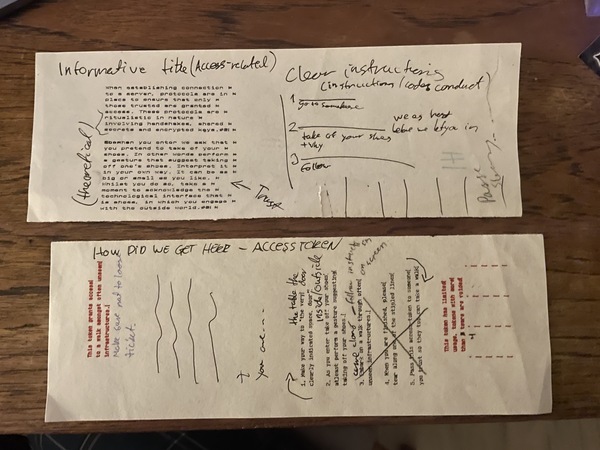 Informative title (Access-related)
(theoretical)
When establishing connection
to a server, protocols are in
place to ensure that only
those trusted are granted
access. These protocols are
ritualistic in nature
involving handshakes, shared
secrets and encrypted keys.
When you enter we ask that
you pretend to take of your
shoes. In other words perform
a gesture that suggest taking
off one's shoes. Interpret it
in your own way. It can be as
big or small as you like.
Whilst you do so, take a
moment to acknowledge the
technological interface that
is shoes, in which you engage
with the outside World.
Clear instructions
(instruction/codes conduct)
1
Go to somewhere
2
take of your shoes
+ why
we as host
before we let you in
3
Follow
HOW DID WE GET HERE - ACCESS TOKEN
This token grants access
to a walk amongst often unseen
infrastructures.
Make sure not to loose
ticket.
+ you are ...
why take the
inside/outside
1. Make your way to "the very" door
clearly indicated space.
2. As you enter take off your shoes
atleast perform a gesture suggesting
taking off your shoes.
come along - follow instructions
on screen
3. on a walk through often
unseen infrastructures.
4. When you are finished, please
tear along one of the stibled lines
5. Pass this access-token to someone
you trust so they too can take a walk
This token has limited
usage, tokens with more
than 8 tears are voided